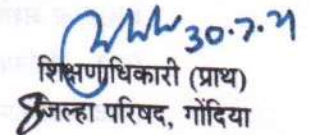 30.7.21
शिक्षणाधिकारी (प्राथ)
जिल्हा परिषद, गोंदिया